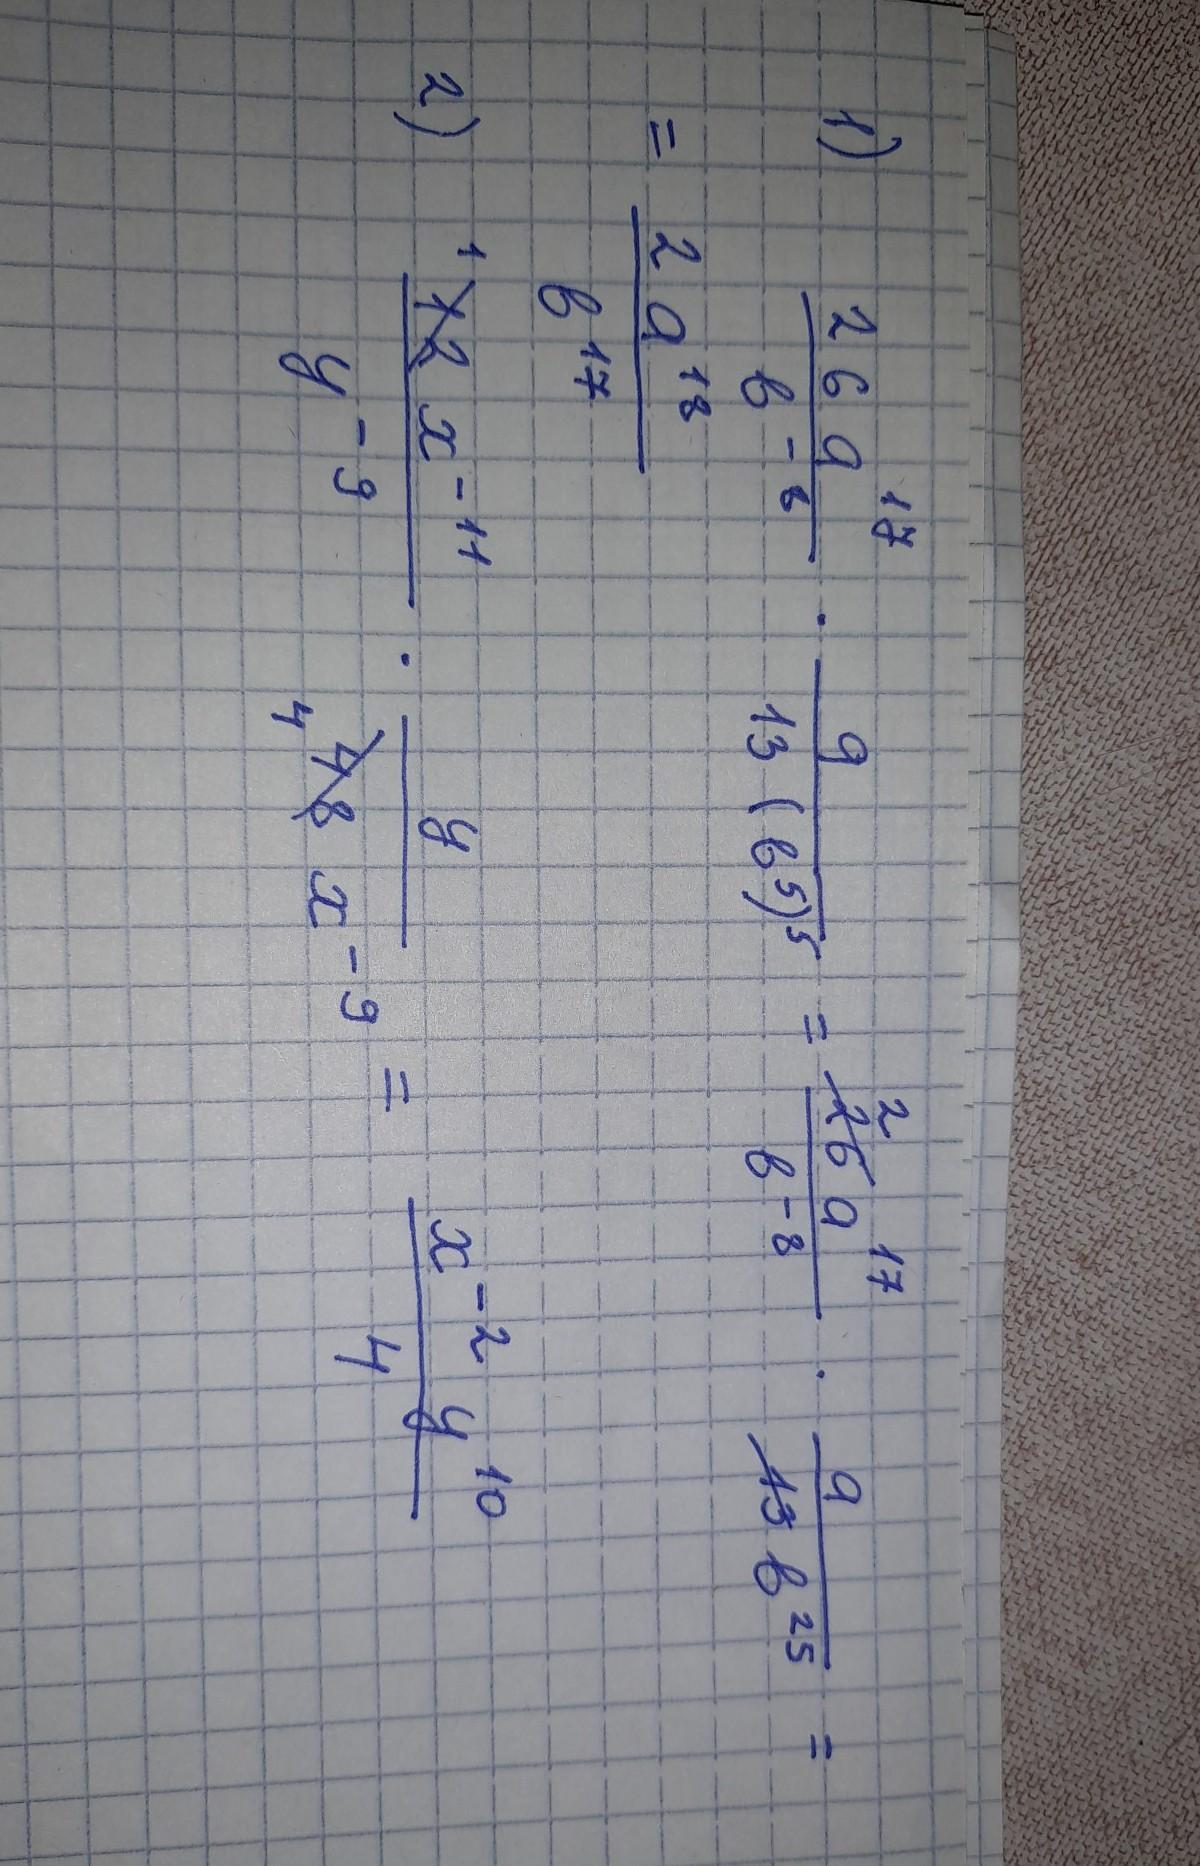 1) 26a^17 / b^-8 · a / 13(b^5)^5 = 2 26a^17 / b^-8 · a / 13b^25 =
= 2a^18 / b^17
2) 1 12x^-11 / y^-9 · y / 4 48x^-9 = x^-2 y^10 / 4